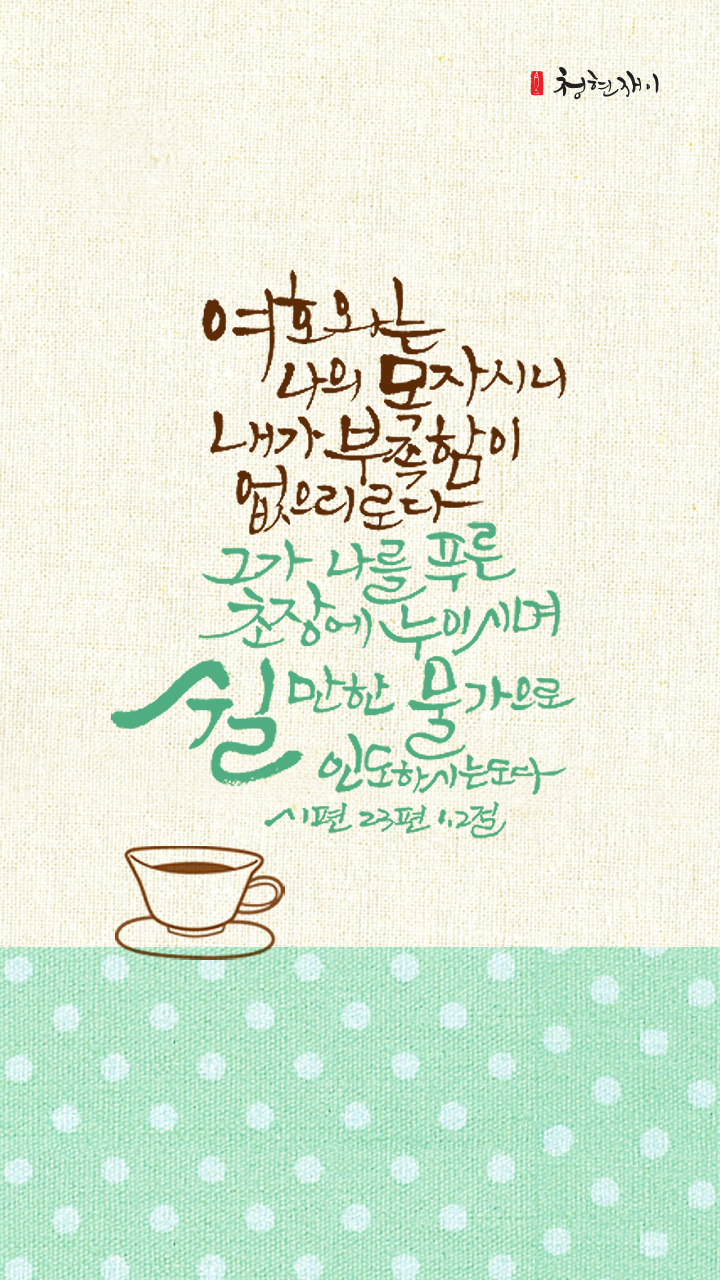 청현재이
여호와는
나의 목자시니
내가 부족함이
없으리로다
그가 나를 푸른
초장에 누이시며
쉴 만한 물가으로
인도하시는도다
시편 23편 1,2절